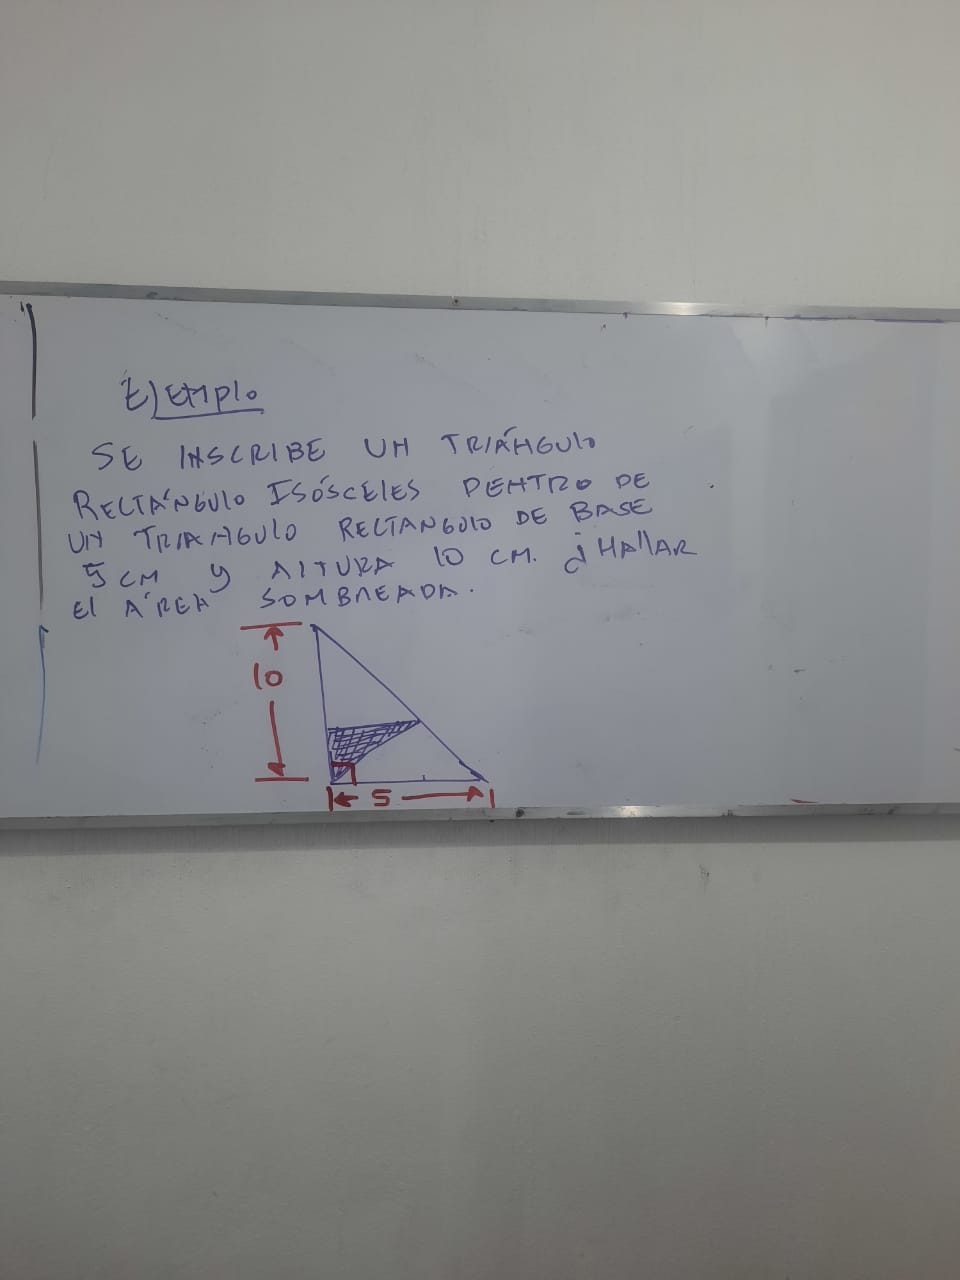 Ejemplo
SE INSCRIBE UN TRIÁNGULO
RECTÁNGULO ISÓSCELES DENTRO DE
UN TRIANGULO RECTANGULO DE BASE
5 CM Y ALTURA 10 CM. ¿HALLAR
El ÁREA SOMBREADA.
10
5